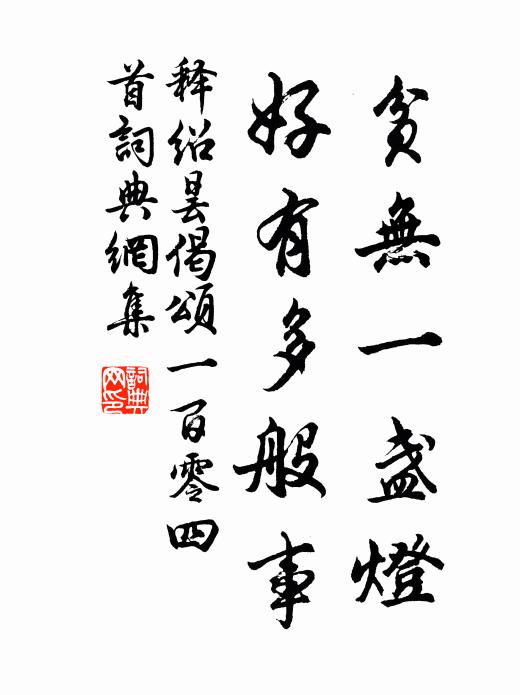 貧無一盞燈
好有多般事
释绍昙偈頌一百零四
首詞典網集
詞典网印